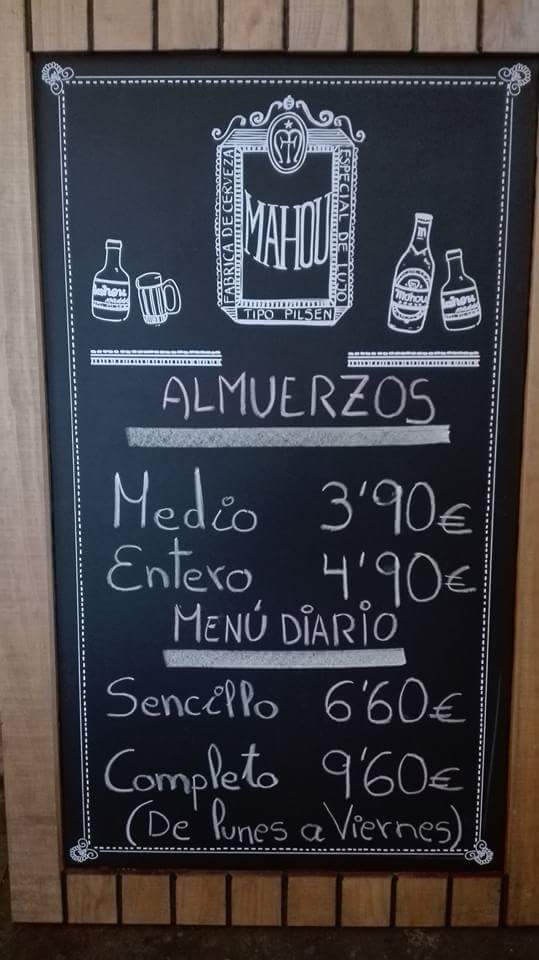 FABRICA DE CERVEZA
MAHOU
ESPECIAL DE LUJO
TIPO PILSEN
mahou
Mahou
mahou
ALMUERZOS
Medio 3'90€
Entero 4'90€
MENÚ DIARIO
Sencillo 6'60€
Completo 9'60€
(De lunes a Viernes)